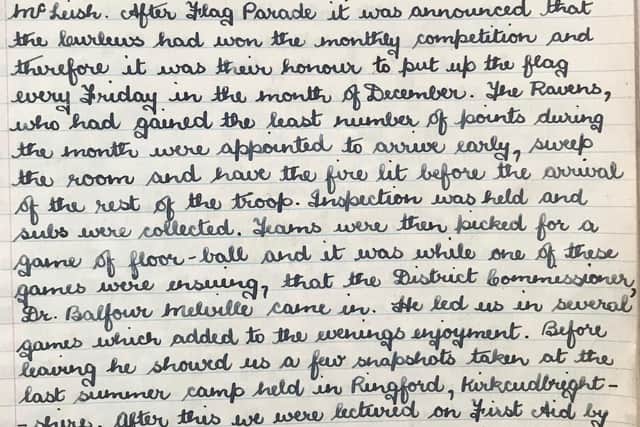 McLeish. After Flag Parade it was announced that
the Curlews had won the monthly competition and
therefore it was their honour to put up the flag
every Friday in the month of December. The Ravens,
who had gained the least number of points during
the month were appointed to arrive early, sweep
the room and have the fire lit before the arrival
of the rest of the troop. Inspection was held and
subs were collected. Teams were then picked for a
game of floor-ball and it was while one of these
games were ensuing, that the District Commissioner,
Dr. Balfour Melville came in. He led us in several
games which added to the evenings enjoyment. Before
leaving he showed us a few snapshots taken at the
last summer camp held in Ringford, Kirkcudbright-
-shire. After this we were lectured on First Aid by